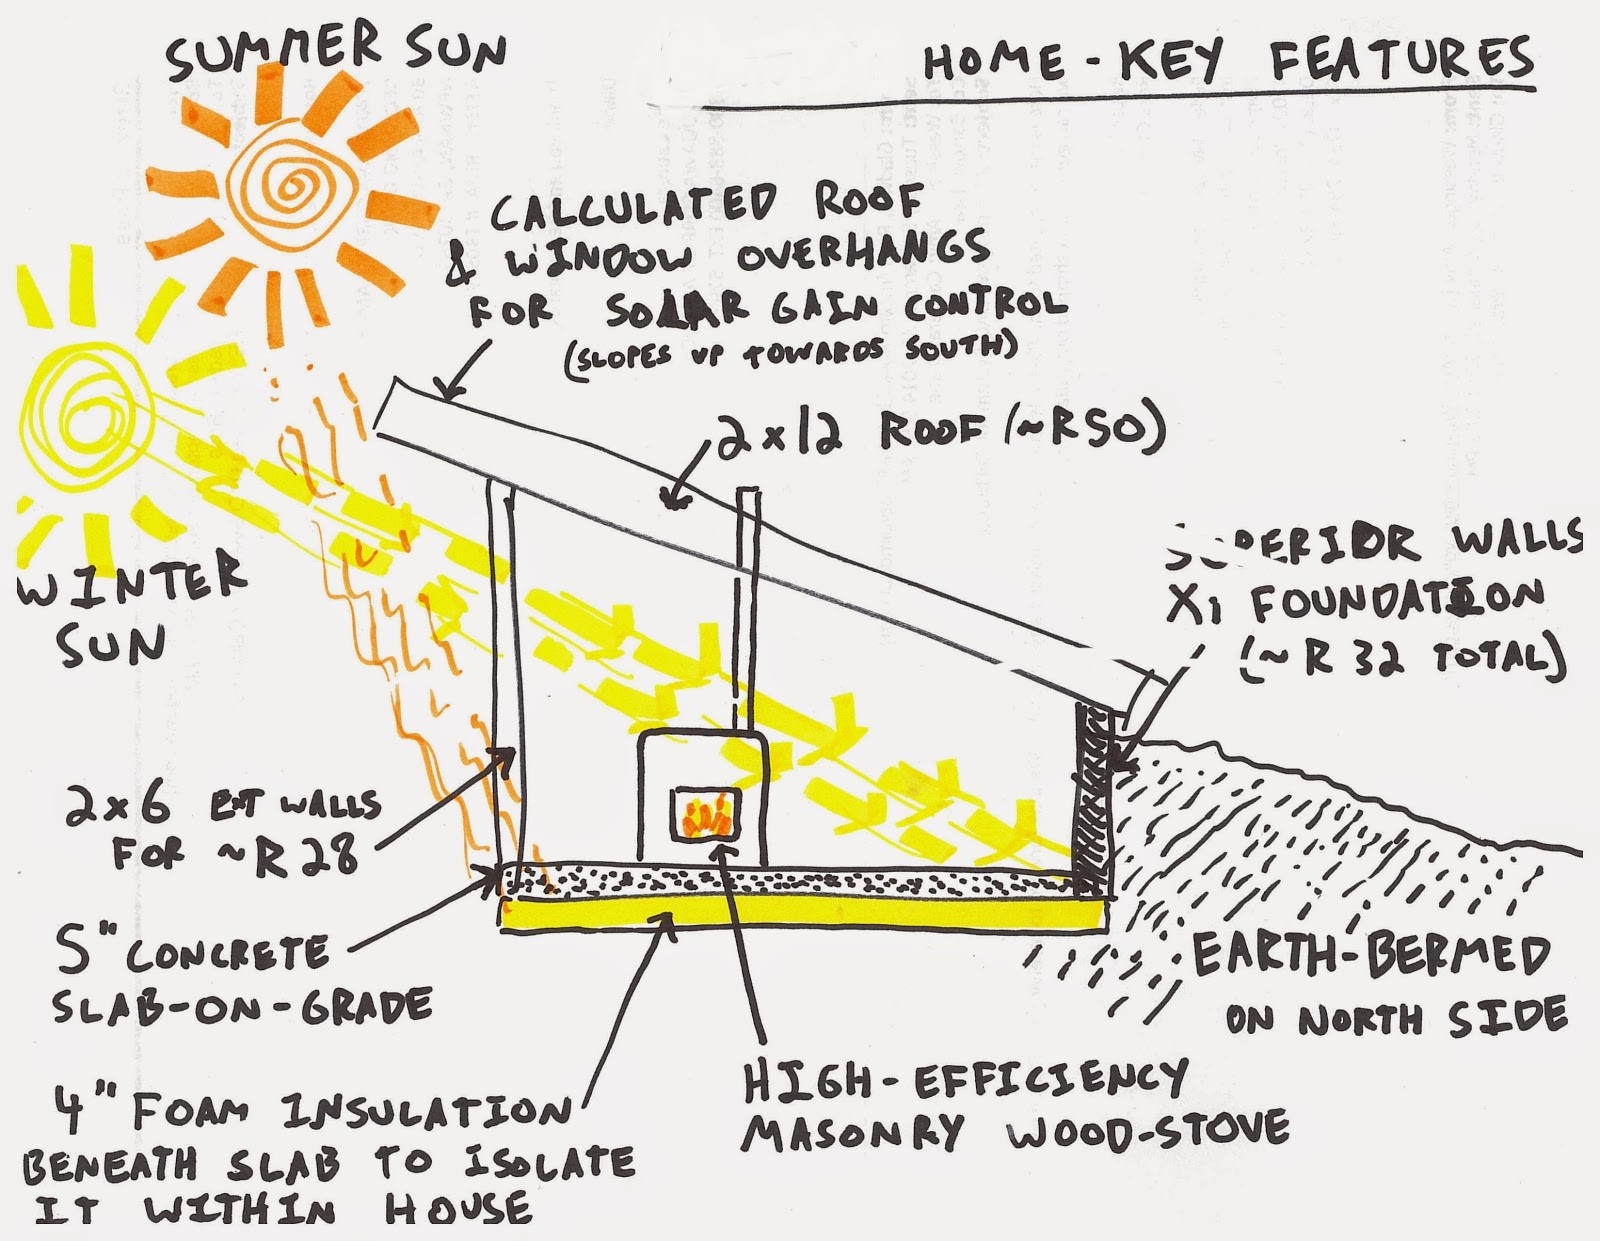 SUMMER SUN
HOME - KEY FEATURES
CALCULATED ROOF
& WINDOW OVERHANGS
FOR SOLAR GAIN CONTROL
(SLOPES UP TOWARDS SOUTH)
2x12 ROOF (~R50)
SUPERIOR WALLS
Xi FOUNDATION
(~R 32 TOTAL)
WINTER
SUN
2x6 EXT WALLS
FOR ~R28
5" CONCRETE
SLAB-ON-GRADE
EARTH-BERMED
ON NORTH SIDE
HIGH-EFFICIENCY
MASONRY WOOD-STOVE
4" FOAM INSULATION
BENEATH SLAB TO ISOLATE
IT WITHIN HOUSE